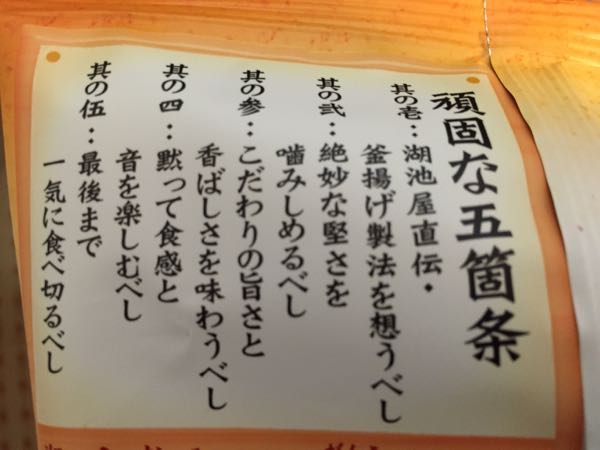 頑固な五箇条
其の壱：湖池屋直伝・
釜揚げ製法を想うべし
其の弐：絶妙な堅さを
噛みしめるべし
其の参：こだわりの旨さと
香ばしさを味わうべし
其の四：黙って食感と
音を楽しむべし
其の伍：最後まで
一気に食べ切るべし